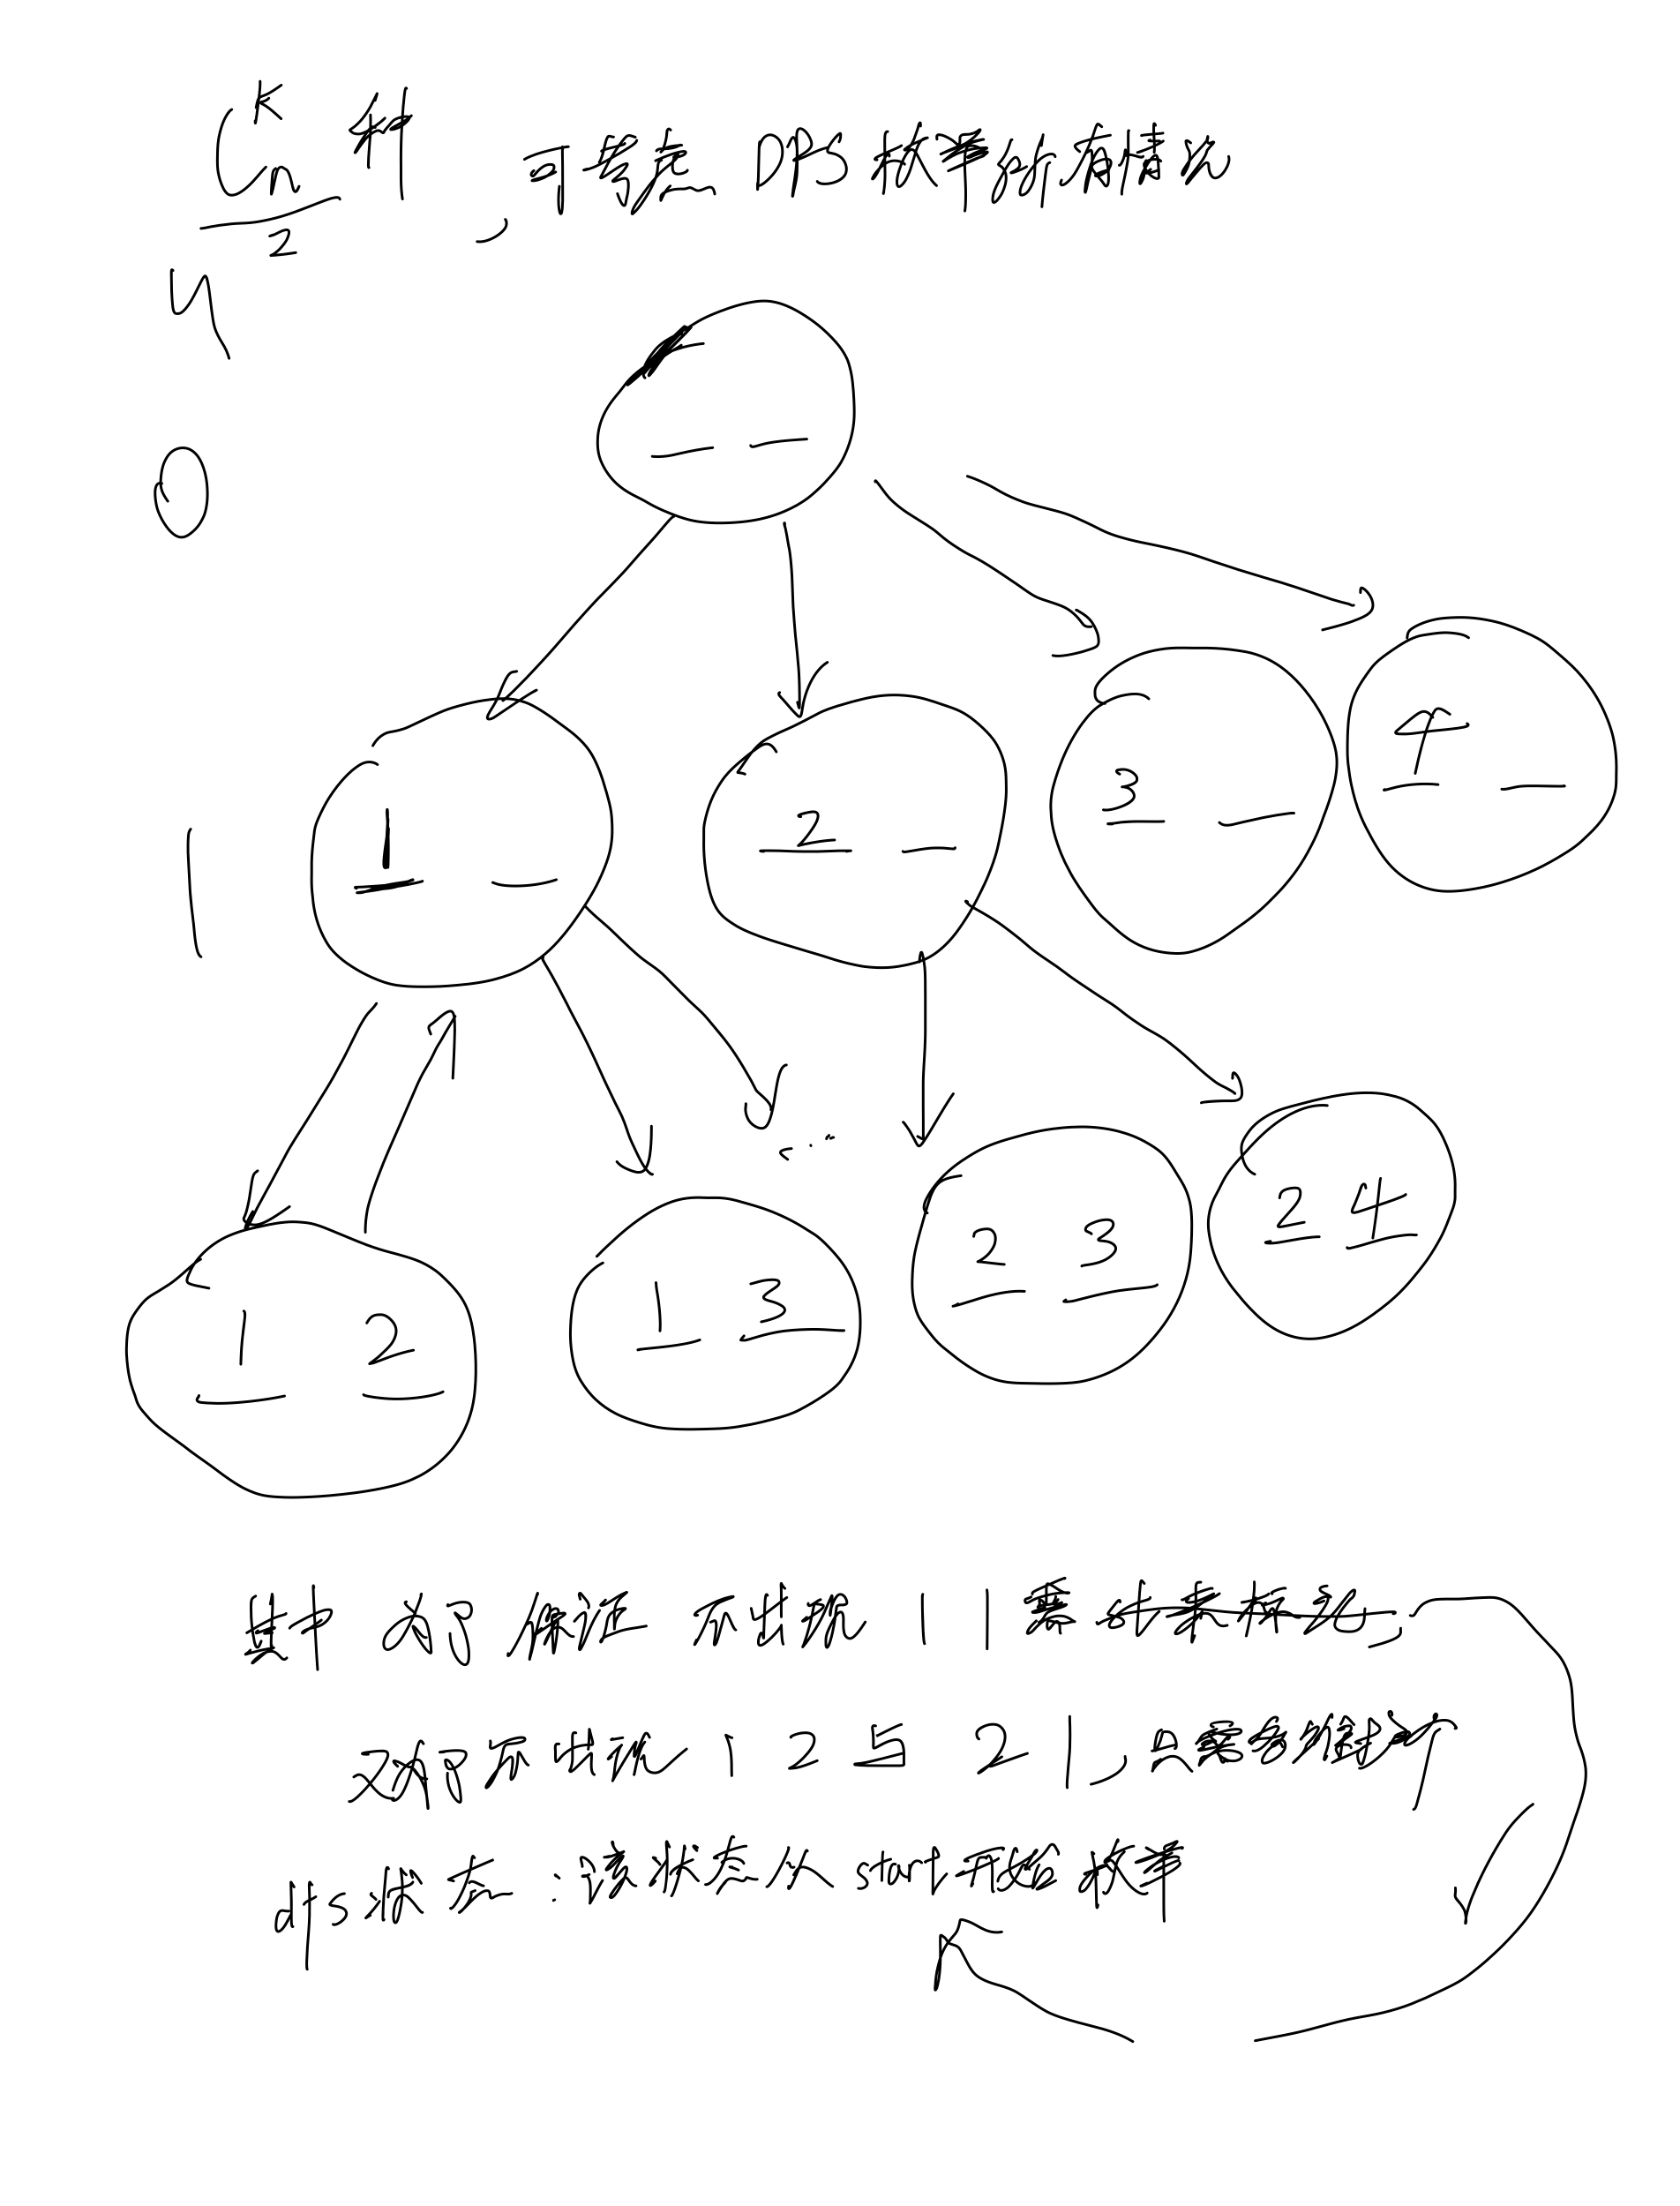 C k n 种
2
4
,可考虑 DFS 枚举所有情况
0
1 2 3 4
1
1 2 1 3 2 3 2 4
其中 为了保证 不出现 1 1 需
双为了不出现 1 2 与 2 1,只要多维护个
dfs状态:该状态从 start 开始枚举